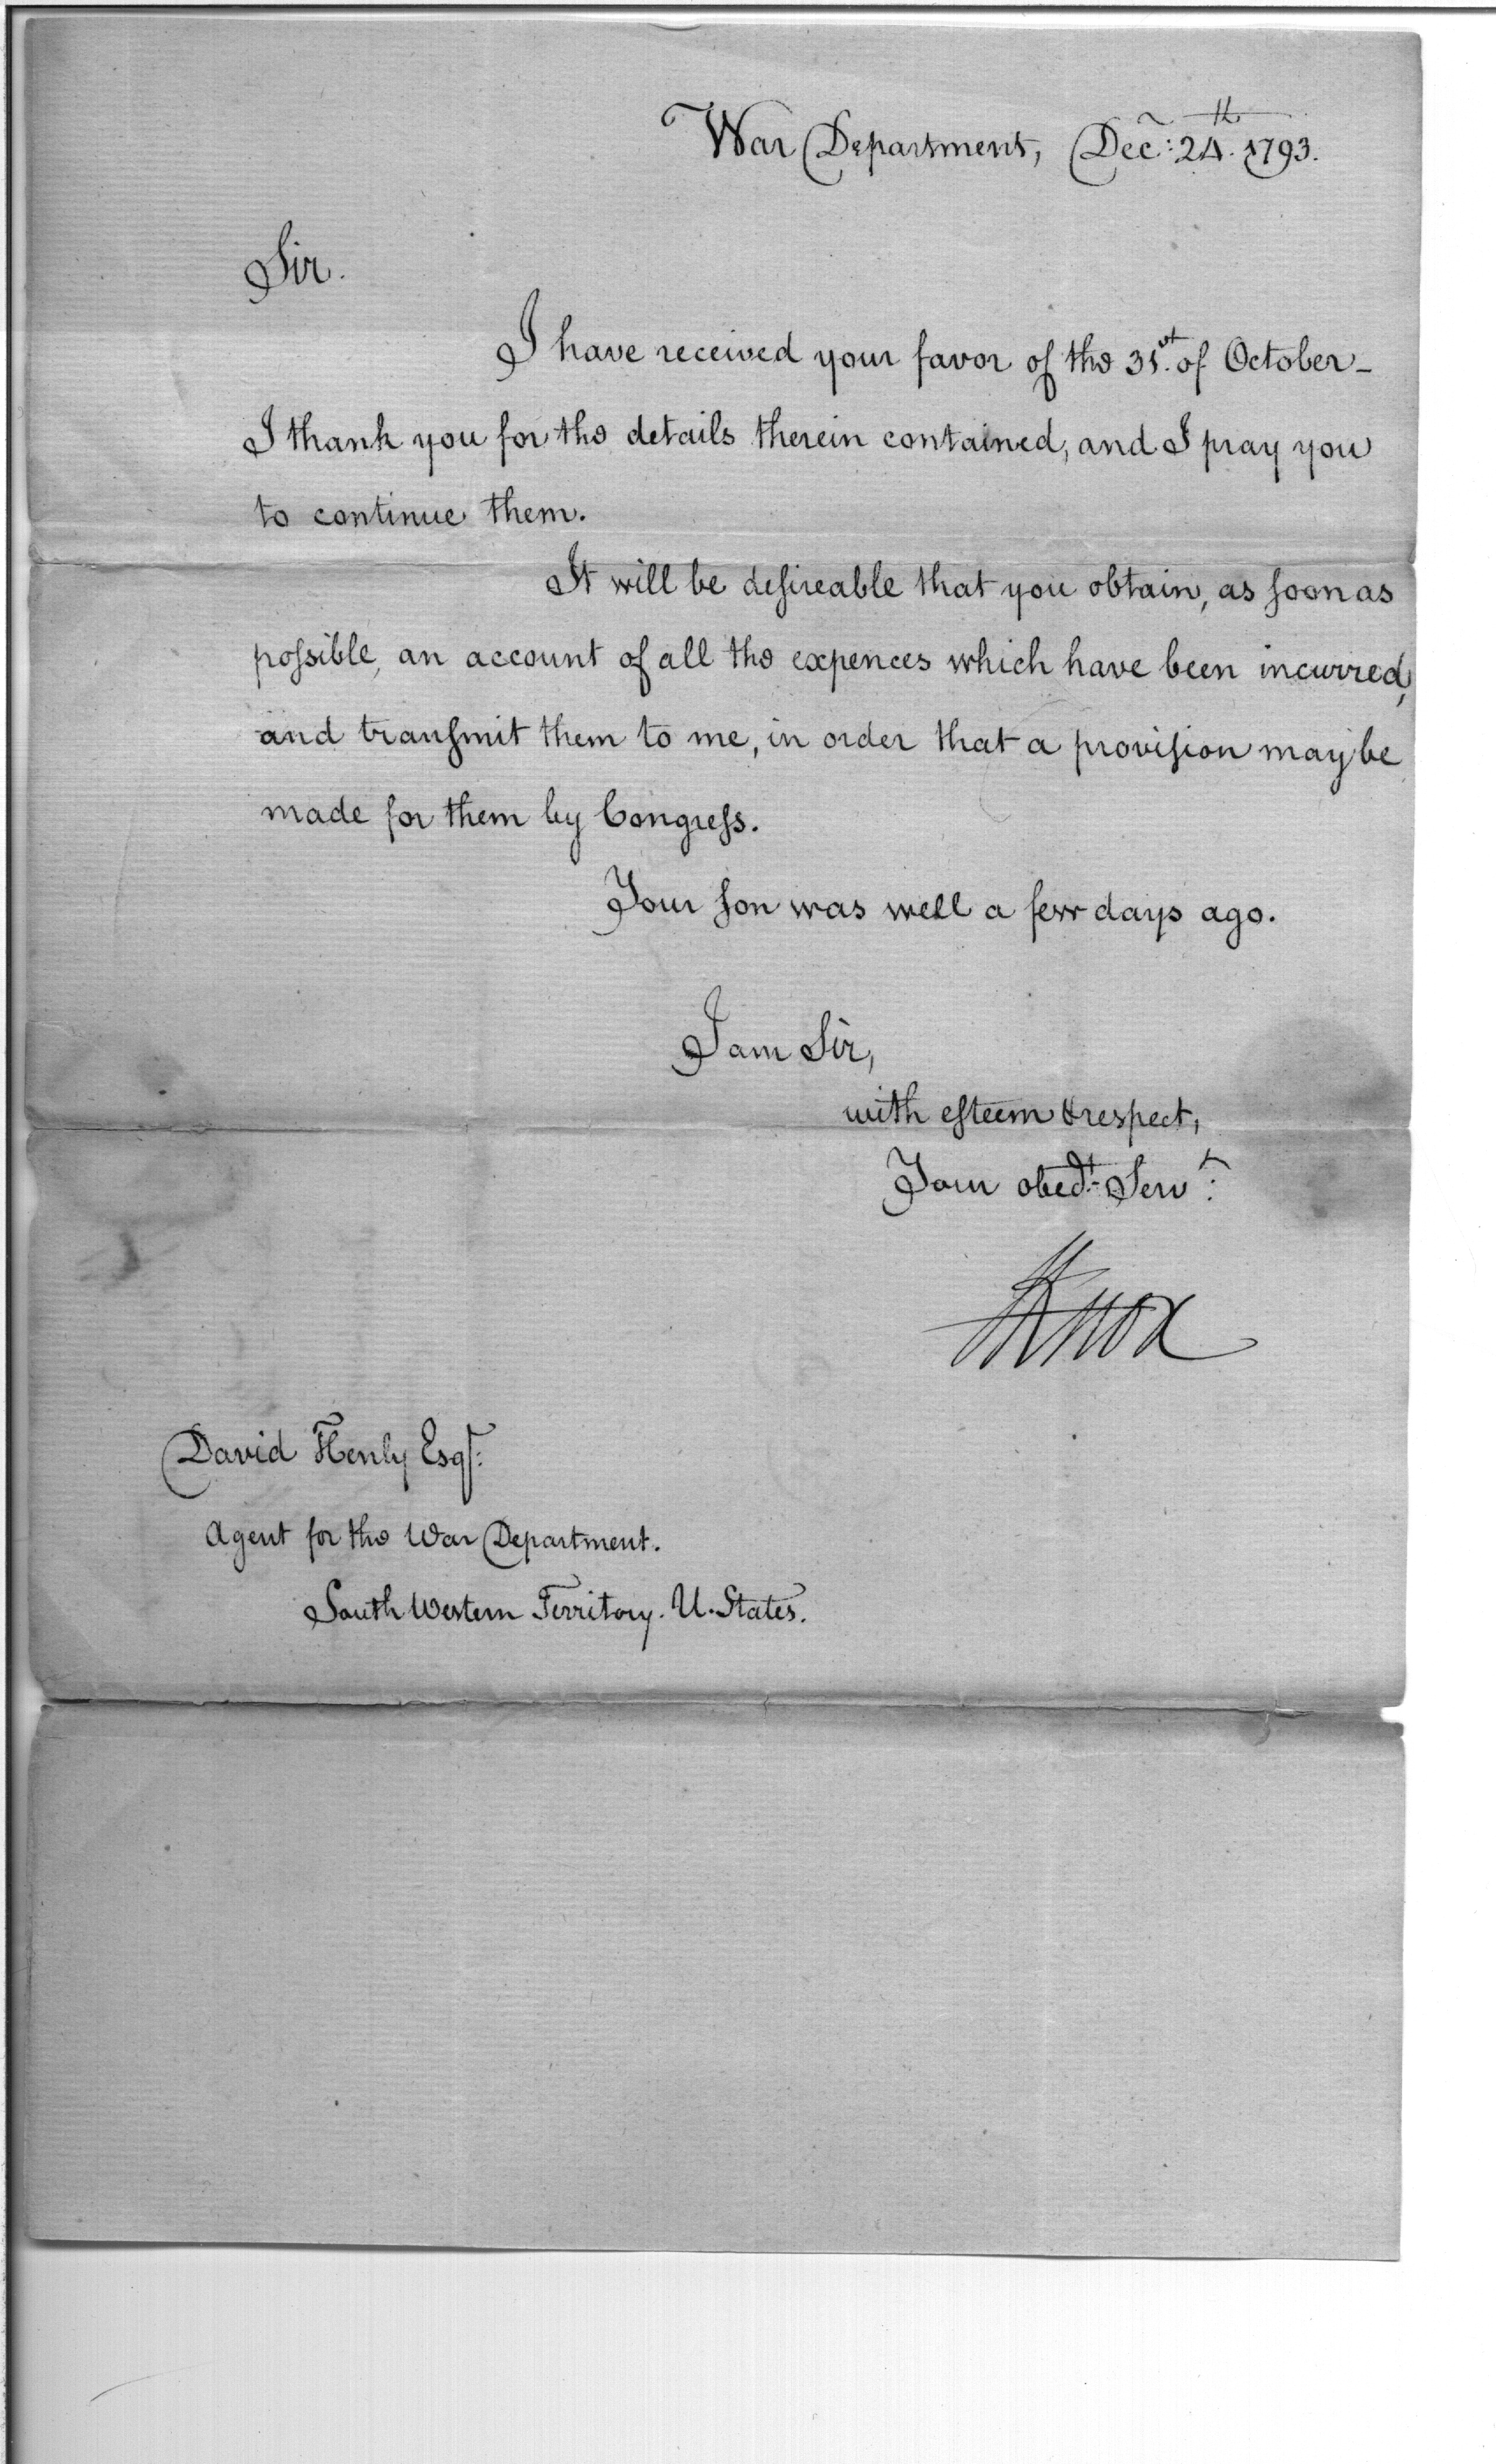 War Department, Decr: 24th. 1793.
Sir.
I have received your favor of the 31st. of October -
I thank you for the details therein contained, and I pray you
to continue them.
It will be deſireable that you obtain, as ſoon as
poſsible, an account of all the expences which have been incurred,
and tranſmit them to me, in order that a proviſion may be
made for them by Congreſs.
Your ſon was well a few days ago.
I am Sir,
with eſteem & respect,
Your obedt. Servt:
HKnox
David Henly Esqr:
Agent for the War Department.
South Western Territory. U. States.